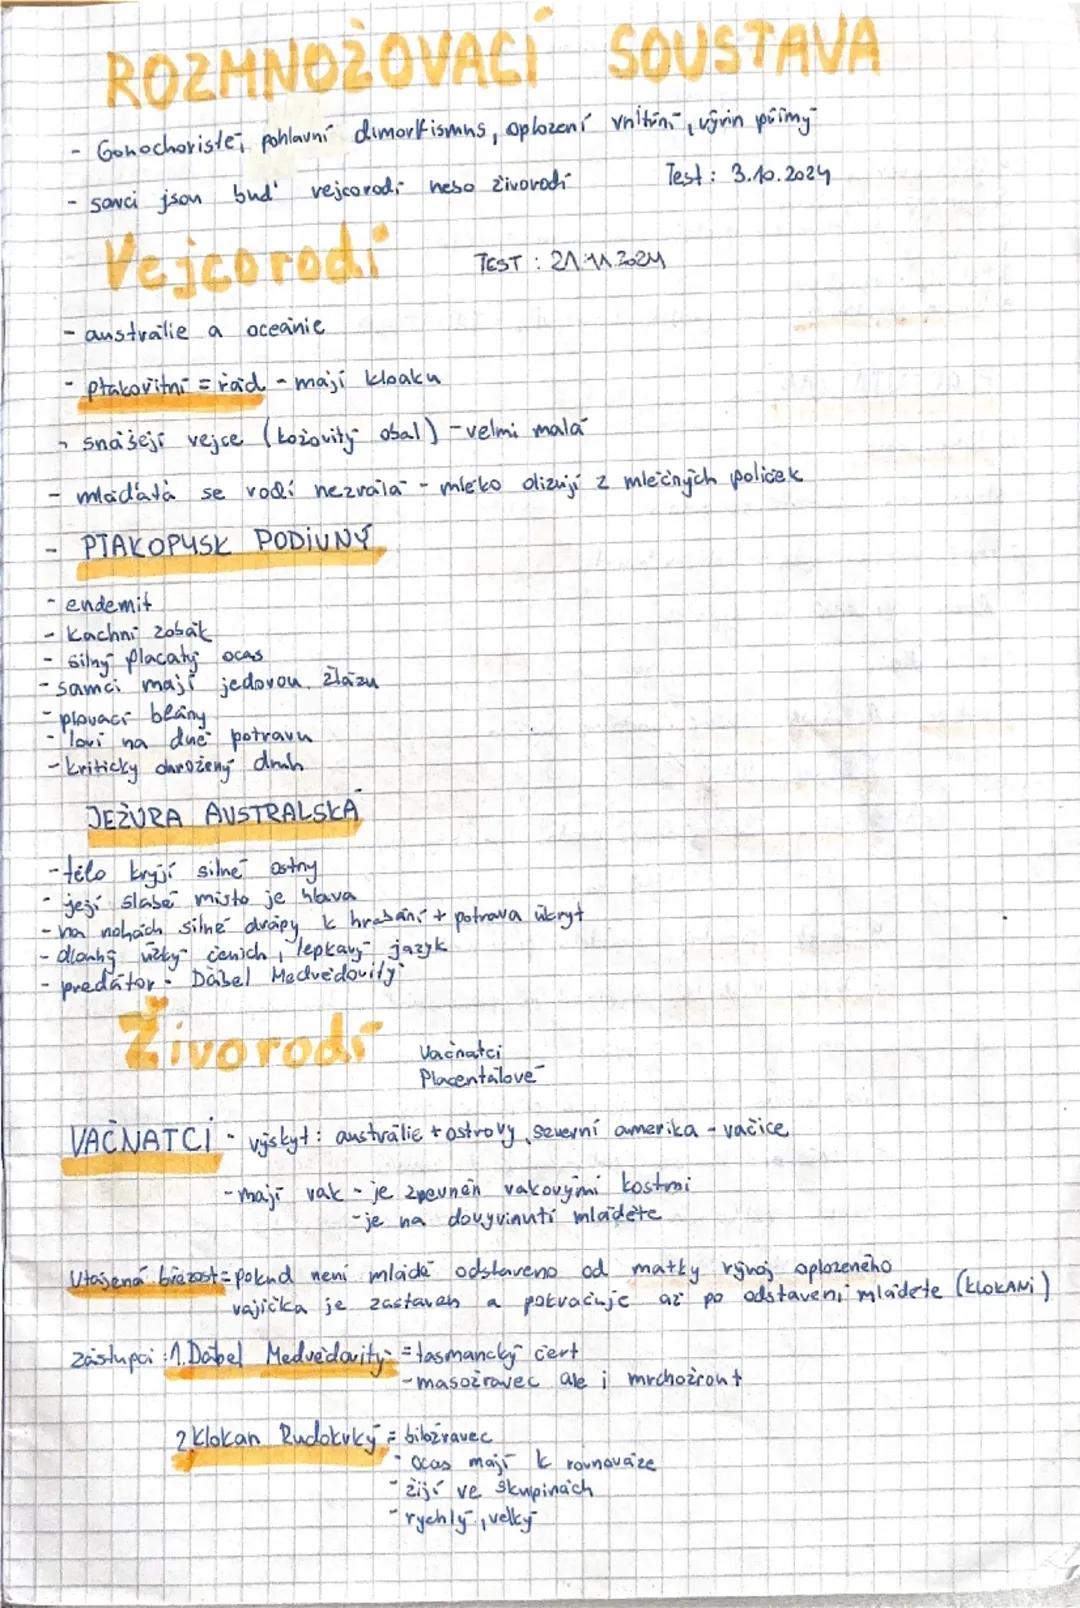 ROZMNOŽOVACÍ SOUSTAVA
- Gonochoristé, pohlavní dimorfismus, oplození vnitřní, vývin přímý
- savci jsou buď vejcorodí nebo živorodí Test: 3.10.2024
Vejcorodí TEST: 21.11.2024
- austrálie a oceánie
- ptakořitní = řád - mají kloaku
- snášejí vejce (kožovitý obal) - velmi malá
- mláďata se rodí nezralá - mléko olizují z mléčných políček
- PTAKOPYSK PODIVNÝ
- endemit
- kachní zobák
- silný placatý ocas
- samci mají jedovou žlázu
- plovací blány
- loví na dně potravu
- kriticky ohrožený druh
JEŽURA AUSTRALSKÁ
- tělo kryjí silné ostny
- její slabé místo je hlava
- na nohách silné drápy k hrabání + potrava úkryt
- dlouhý úzký čenich, lepkavý jazyk
- predátor - Ďábel Medvědovitý
Živorodí
Vačnatci
Placentálové
VAČNATCI - výskyt: austrálie + ostrovy, severní amerika - vačice
- mají vak - je zpevněn vakovými kostmi
- je na dovyvinutí mláděte
Utajená březost = pokud není mládě odstaveno od matky vývoj oplozeného
vajíčka je zastaven a pokračuje až po odstavení mláděte (KLOKANI)
zástupci: 1. Ďábel Medvědovitý = tasmánský čert
- masožravec ale i mrchožrout
2. Klokan Rudokrký = býložravec
- ocas mají k rovnováze
- žijí ve skupinách
- rychlý, velký